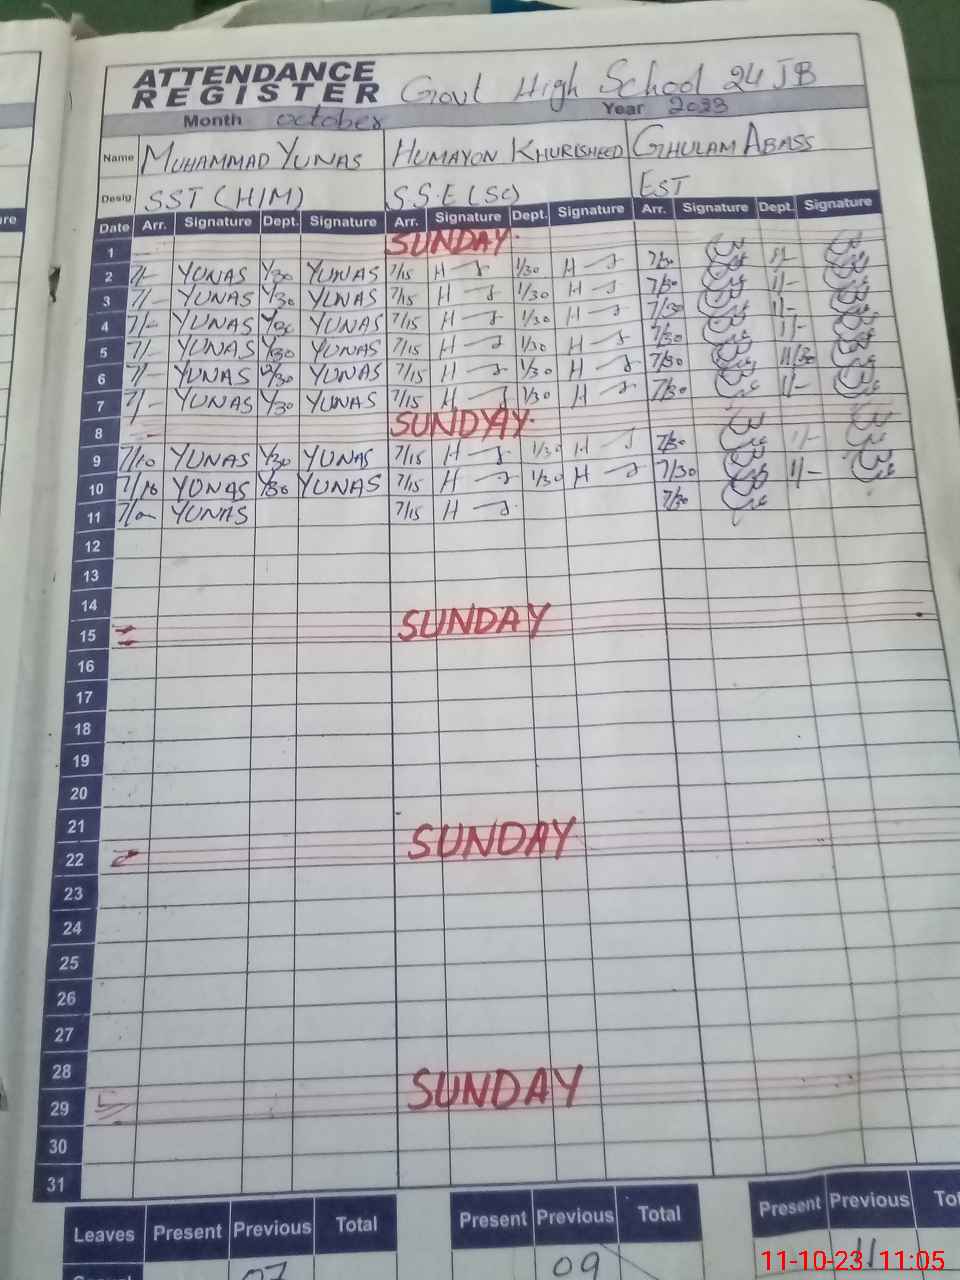 ATTENDANCE REGISTER Govt High School 24 JB
Month October Year 2023
Name MUHAMMAD YUNAS HUMAYON KHURISHEED GHULAM ABASS
Desig SST (H/M) S.S.E (SC) EST
Date Arr. Signature Dept. Signature Arr. Signature Dept. Signature Arr. Signature Dept. Signature
1 SUNDAY
2 7/- YUNAS 1/30 YUNAS 7/15 H 1/30 H 7/30 1/-
3 7/- YUNAS 1/30 YUNAS 7/15 H 1/30 H 7/30 1/-
4 7/- YUNAS YUNAS 7/15 H 1/30 H 7/30 1/-
5 7/- YUNAS 1/30 YUNAS 7/15 H 1/30 H 7/30 1/-
6 7/- YUNAS YUNAS 7/15 H 1/30 H 7/30 11/30
7 7/- YUNAS 1/30 YUNAS 7/15 H 1/30 H 7/30 1/-
8 SUNDAY
9 7/10 YUNAS 1/30 YUNAS 7/15 H 1/30 H 7/30 1/-
10 7/10 YUNAS 1/30 YUNAS 7/15 H 1/30 H 7/30 1/-
11 YUNAS 7/15 H 7/30
12
13
14
15 SUNDAY
16
17
18
19
20
21
22 SUNDAY
23
24
25
26
27
28
29 SUNDAY
30
31
Leaves Present Previous Total Present Previous Total Present Previous
07 09 11
11-10-23 11:05